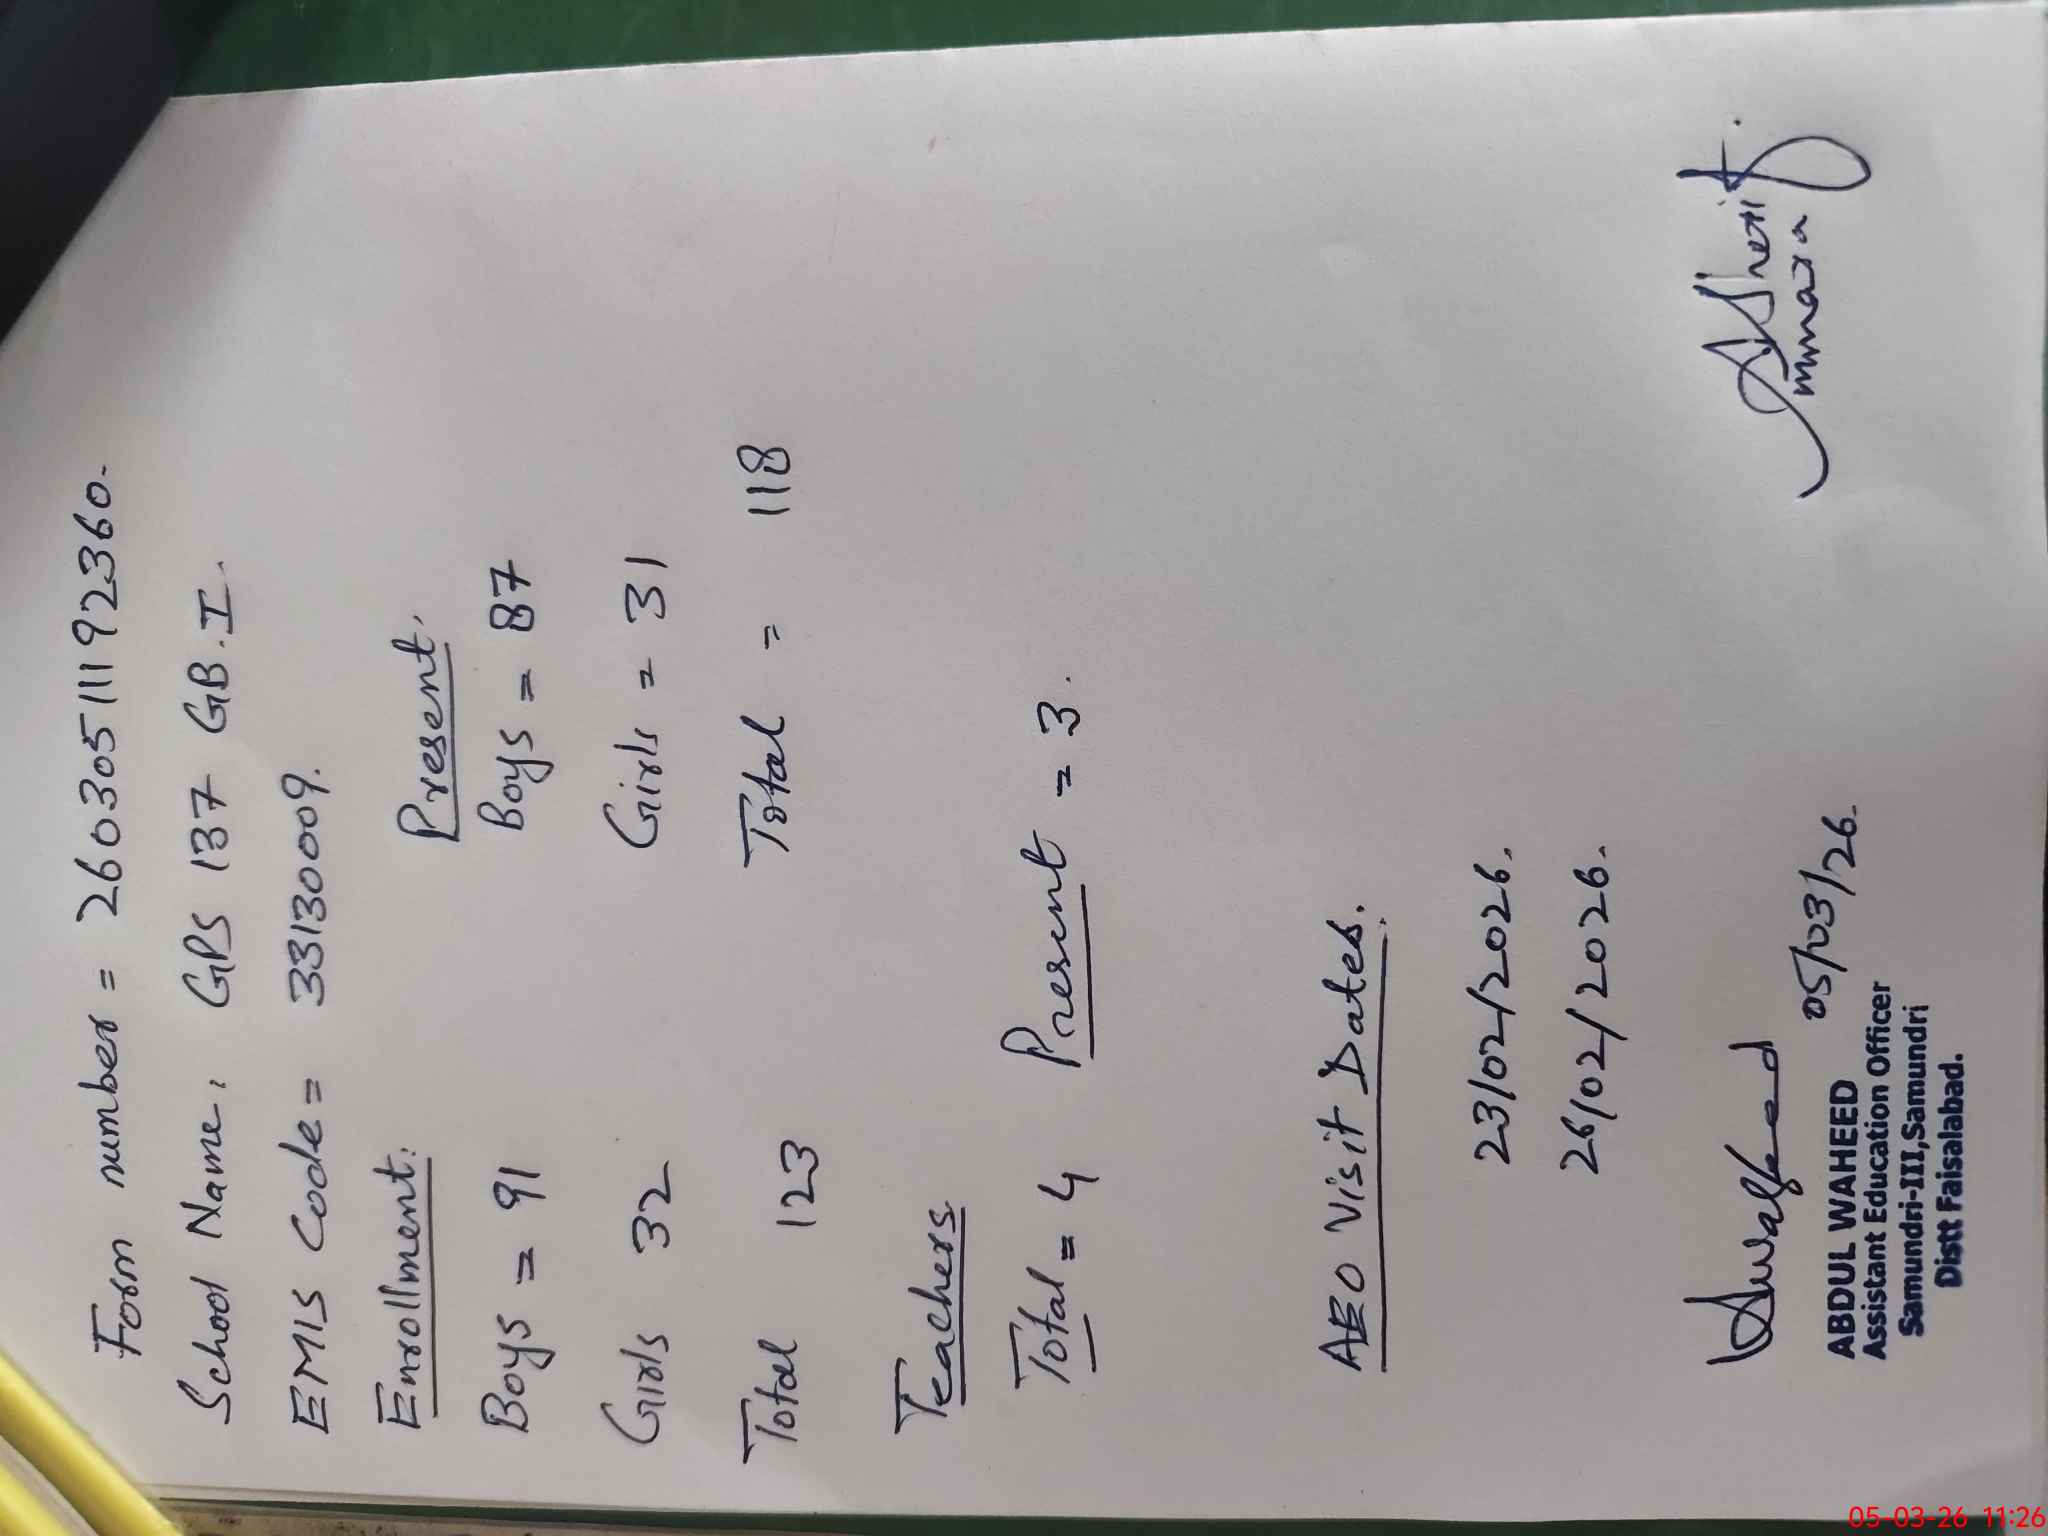 Form number = 260305111192360.
School Name: GPS 137 GB.I.
EMIS Code = 33130009.
Enrollment: Present.
Boys = 91 Boys = 87
Girls 32 Girls = 31
Total 123 Total = 118
Teachers
Total = 4 Present = 3.
AEO Visit Dates.
23/02/2026.
26/02/2026.
05/03/26.
ABDUL WAHEED
Assistant Education Officer
Samundri-III,Samundri
Distt Faisalabad.
05-03-26 11:26